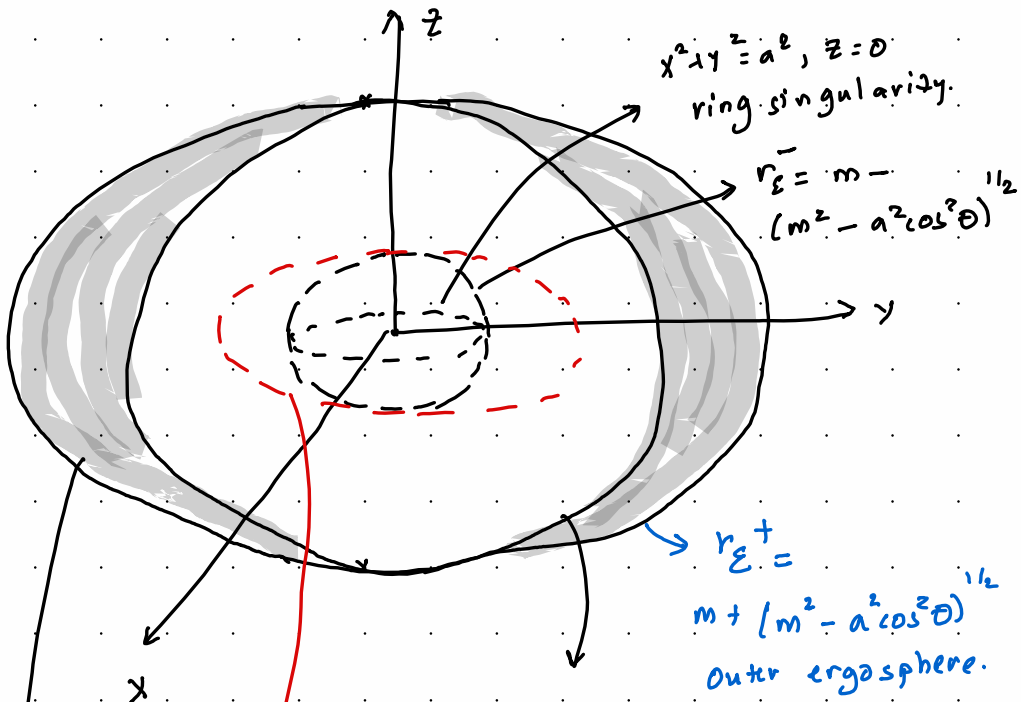 z
x²+y²=a², z=0
ring singularity.
r_ε⁻ = m −
(m² − a²cos²θ)^1/2
y
r_ε⁺ =
m + (m² − a²cos²θ)^1/2
outer ergosphere.
x